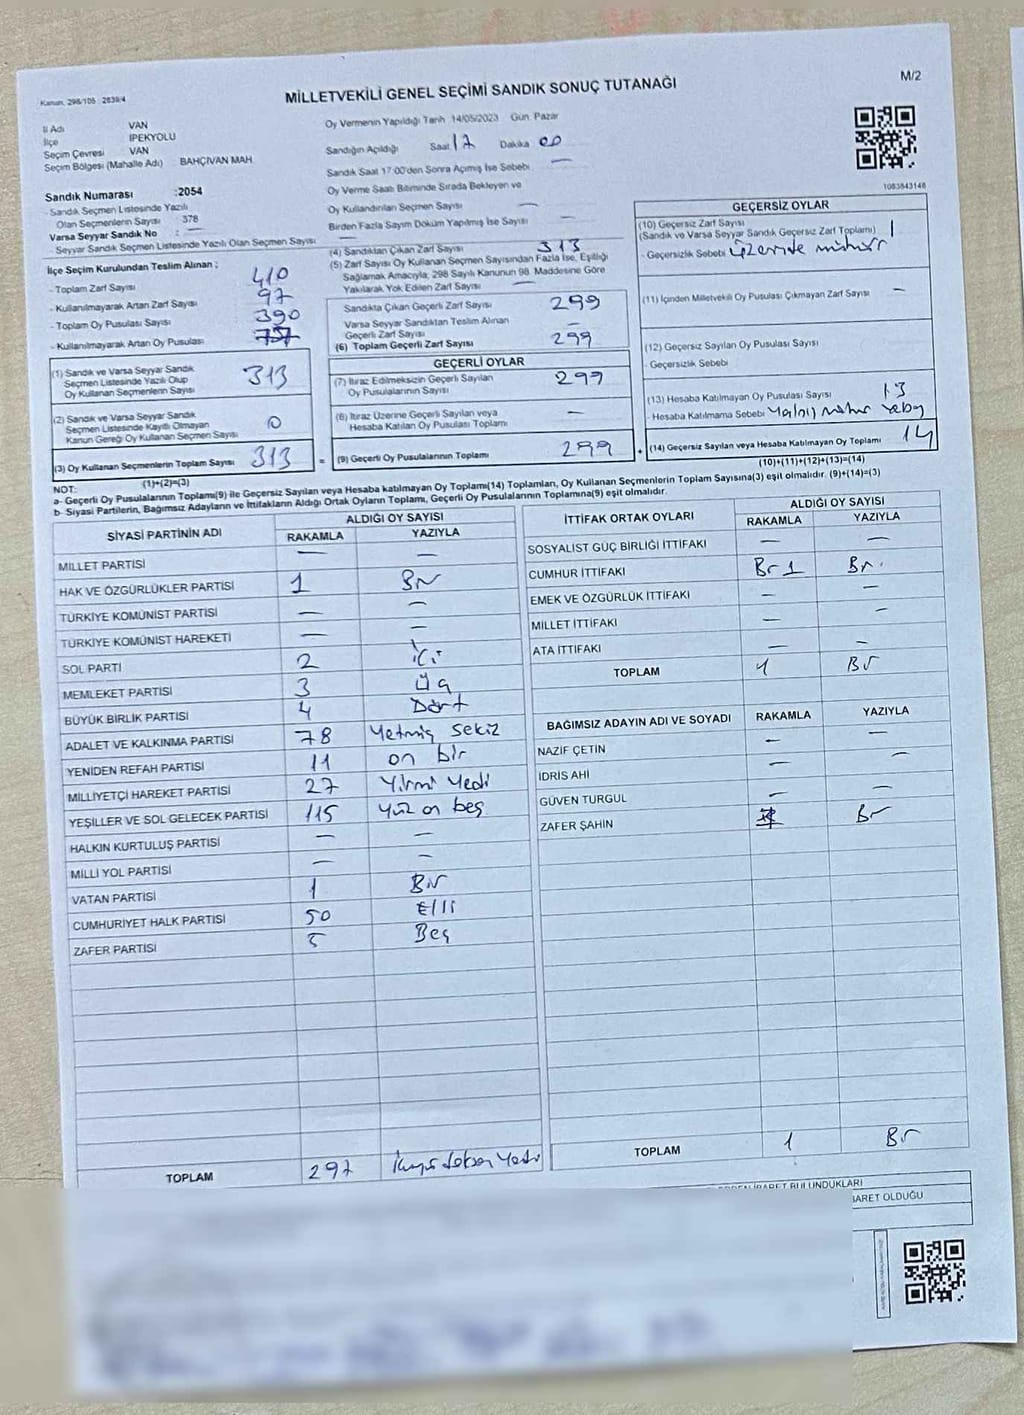 Kanun, 298/105 : 2839/4
MİLLETVEKİLİ GENEL SEÇİMİ SANDIK SONUÇ TUTANAĞI
M/2
İl Adı VAN
İlçe IPEKYOLU
Seçim Çevresi VAN
Seçim Bölgesi (Mahalle Adı) BAHÇIVAN MAH
Sandık Numarası :2054
- Sandık Seçmen Listesinde Yazılı
Olan Seçmenlerin Sayısı : 378
Varsa Seyyar Sandık No : —
- Seyyar Sandık Seçmen Listesinde Yazılı Olan Seçmen Sayısı —
Oy Vermenin Yapıldığı Tarih 14/05/2023 Gün: Pazar
Sandığın Açıldığı Saat 17 Dakika 00
Sandık Saat 17:00'den Sonra Açımış İse Sebebi —
Oy Verme Saati Bitiminde Sırada Bekleyen ve
Oy Kullandırılan Seçmen Sayısı —
Birden Fazla Sayım Döküm Yapılmış İse Sayısı —
1083843148
İlçe Seçim Kurulundan Teslim Alınan ;
- Toplam Zarf Sayısı 410
- Kullanılmayarak Artan Zarf Sayısı 97
- Toplam Oy Pusulası Sayısı 390
- Kullanılmayarak Artan Oy Pusulası
(1) Sandık ve Varsa Seyyar Sandık
Seçmen Listesinde Yazılı Olup
Oy Kullanan Seçmenlerin Sayısı 313
(2) Sandık ve Varsa Seyyar Sandık
Seçmen Listesinde Kayıtlı Olmayan
Kanun Gereği Oy Kullanan Seçmen Sayısı 0
(3) Oy Kullanan Seçmenlerin Toplam Sayısı 313 =
(1)+(2)=(3)
(4) Sandıktan Çıkan Zarf Sayısı 313
(5) Zarf Sayısı Oy Kullanan Seçmen Sayısından Fazla İse, Eşitliği
Sağlamak Amacıyla, 298 Sayılı Kanunun 98. Maddesine Göre
Yakılarak Yok Edilen Zarf Sayısı —
Sandıkta Çıkan Geçerli Zarf Sayısı 299
Varsa Seyyar Sandıktan Teslim Alınan
Geçerli Zarf Sayısı —
(6) Toplam Geçerli Zarf Sayısı 299
GEÇERLİ OYLAR
(7) İtiraz Edilmeksizin Geçerli Sayılan
Oy Pusulalarının Sayısı 299
(8) İtiraz Üzerine Geçerli Sayılan veya
Hesaba Katılan Oy Pusulası Toplamı —
(9) Geçerli Oy Pusulalarının Toplamı 299 +
GEÇERSİZ OYLAR
(10) Geçersiz Zarf Sayısı
(Sandık ve Varsa Seyyar Sandık Geçersiz Zarf Toplamı) 1
- Geçersizlik Sebebi üzerinde mühür
(11) İçinden Milletvekili Oy Pusulası Çıkmayan Zarf Sayısı —
(12) Geçersiz Sayılan Oy Pusulası Sayısı
- Geçersizlik Sebebi
(13) Hesaba Katılmayan Oy Pusulası Sayısı 13
- Hesaba Katılmama Sebebi
(14) Geçersiz Sayılan veya Hesaba Katılmayan Oy Toplamı 14
(10)+(11)+(12)+(13)=(14)
NOT:
a- Geçerli Oy Pusulalarının Toplamı(9) ile Geçersiz Sayılan veya Hesaba katılmayan Oy Toplamı(14) Toplamları, Oy Kullanan Seçmenlerin Toplam Sayısına(3) eşit olmalıdır. (9)+(14)=(3)
b- Siyasi Partilerin, Bağımsız Adayların ve İttifakların Aldığı Ortak Oyların Toplamı, Geçerli Oy Pusulalarının Toplamına(9) eşit olmalıdır.
SİYASİ PARTİNİN ADI ALDIĞI OY SAYISI
RAKAMLA YAZIYLA
MİLLET PARTİSİ — —
HAK VE ÖZGÜRLÜKLER PARTİSİ 1 Bir
TÜRKİYE KOMÜNİST PARTİSİ — —
TÜRKİYE KOMÜNİST HAREKETİ — —
SOL PARTİ 2 iki
MEMLEKET PARTİSİ 3 üç
BÜYÜK BİRLİK PARTİSİ 4 Dört
ADALET VE KALKINMA PARTİSİ 78 Yetmiş sekiz
YENİDEN REFAH PARTİSİ 11 on bir
MİLLİYETÇİ HAREKET PARTİSİ 27 Yirmi Yedi
YEŞİLLER VE SOL GELECEK PARTİSİ 115 Yüz on beş
HALKIN KURTULUŞ PARTİSİ — —
MİLLİ YOL PARTİSİ — —
VATAN PARTİSİ 1 Bir
CUMHURİYET HALK PARTİSİ 50 Elli
ZAFER PARTİSİ 5 Beş
TOPLAM 297 ikiyüz doksan Yedi
İTTİFAK ORTAK OYLARI ALDIĞI OY SAYISI
RAKAMLA YAZIYLA
SOSYALIST GÜÇ BİRLİĞİ İTTİFAKI — —
CUMHUR İTTİFAKI Bir 1 Bir
EMEK VE ÖZGÜRLÜK İTTİFAKI — —
MİLLET İTTİFAKI — —
ATA İTTİFAKI — —
TOPLAM 1 Bir
BAĞIMSIZ ADAYIN ADI VE SOYADI RAKAMLA YAZIYLA
NAZİF ÇETİN — —
İDRİS AHİ — —
GÜVEN TURGUL — —
ZAFER ŞAHİN Bir
TOPLAM 1 Bir
İBARET BULUNDUKLARI
BARET OLDUĞU